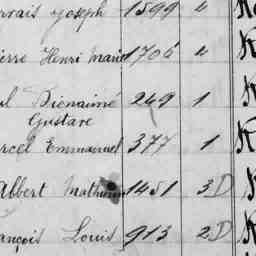 ervais Joseph 1599 4
ierre Henri Marie 1706 4
ul Bienaimé 249 1
Gustave
rcel Emmanuel 377 1
Albert Mathurin 1451 3 D
ançois Louis 913 2 D